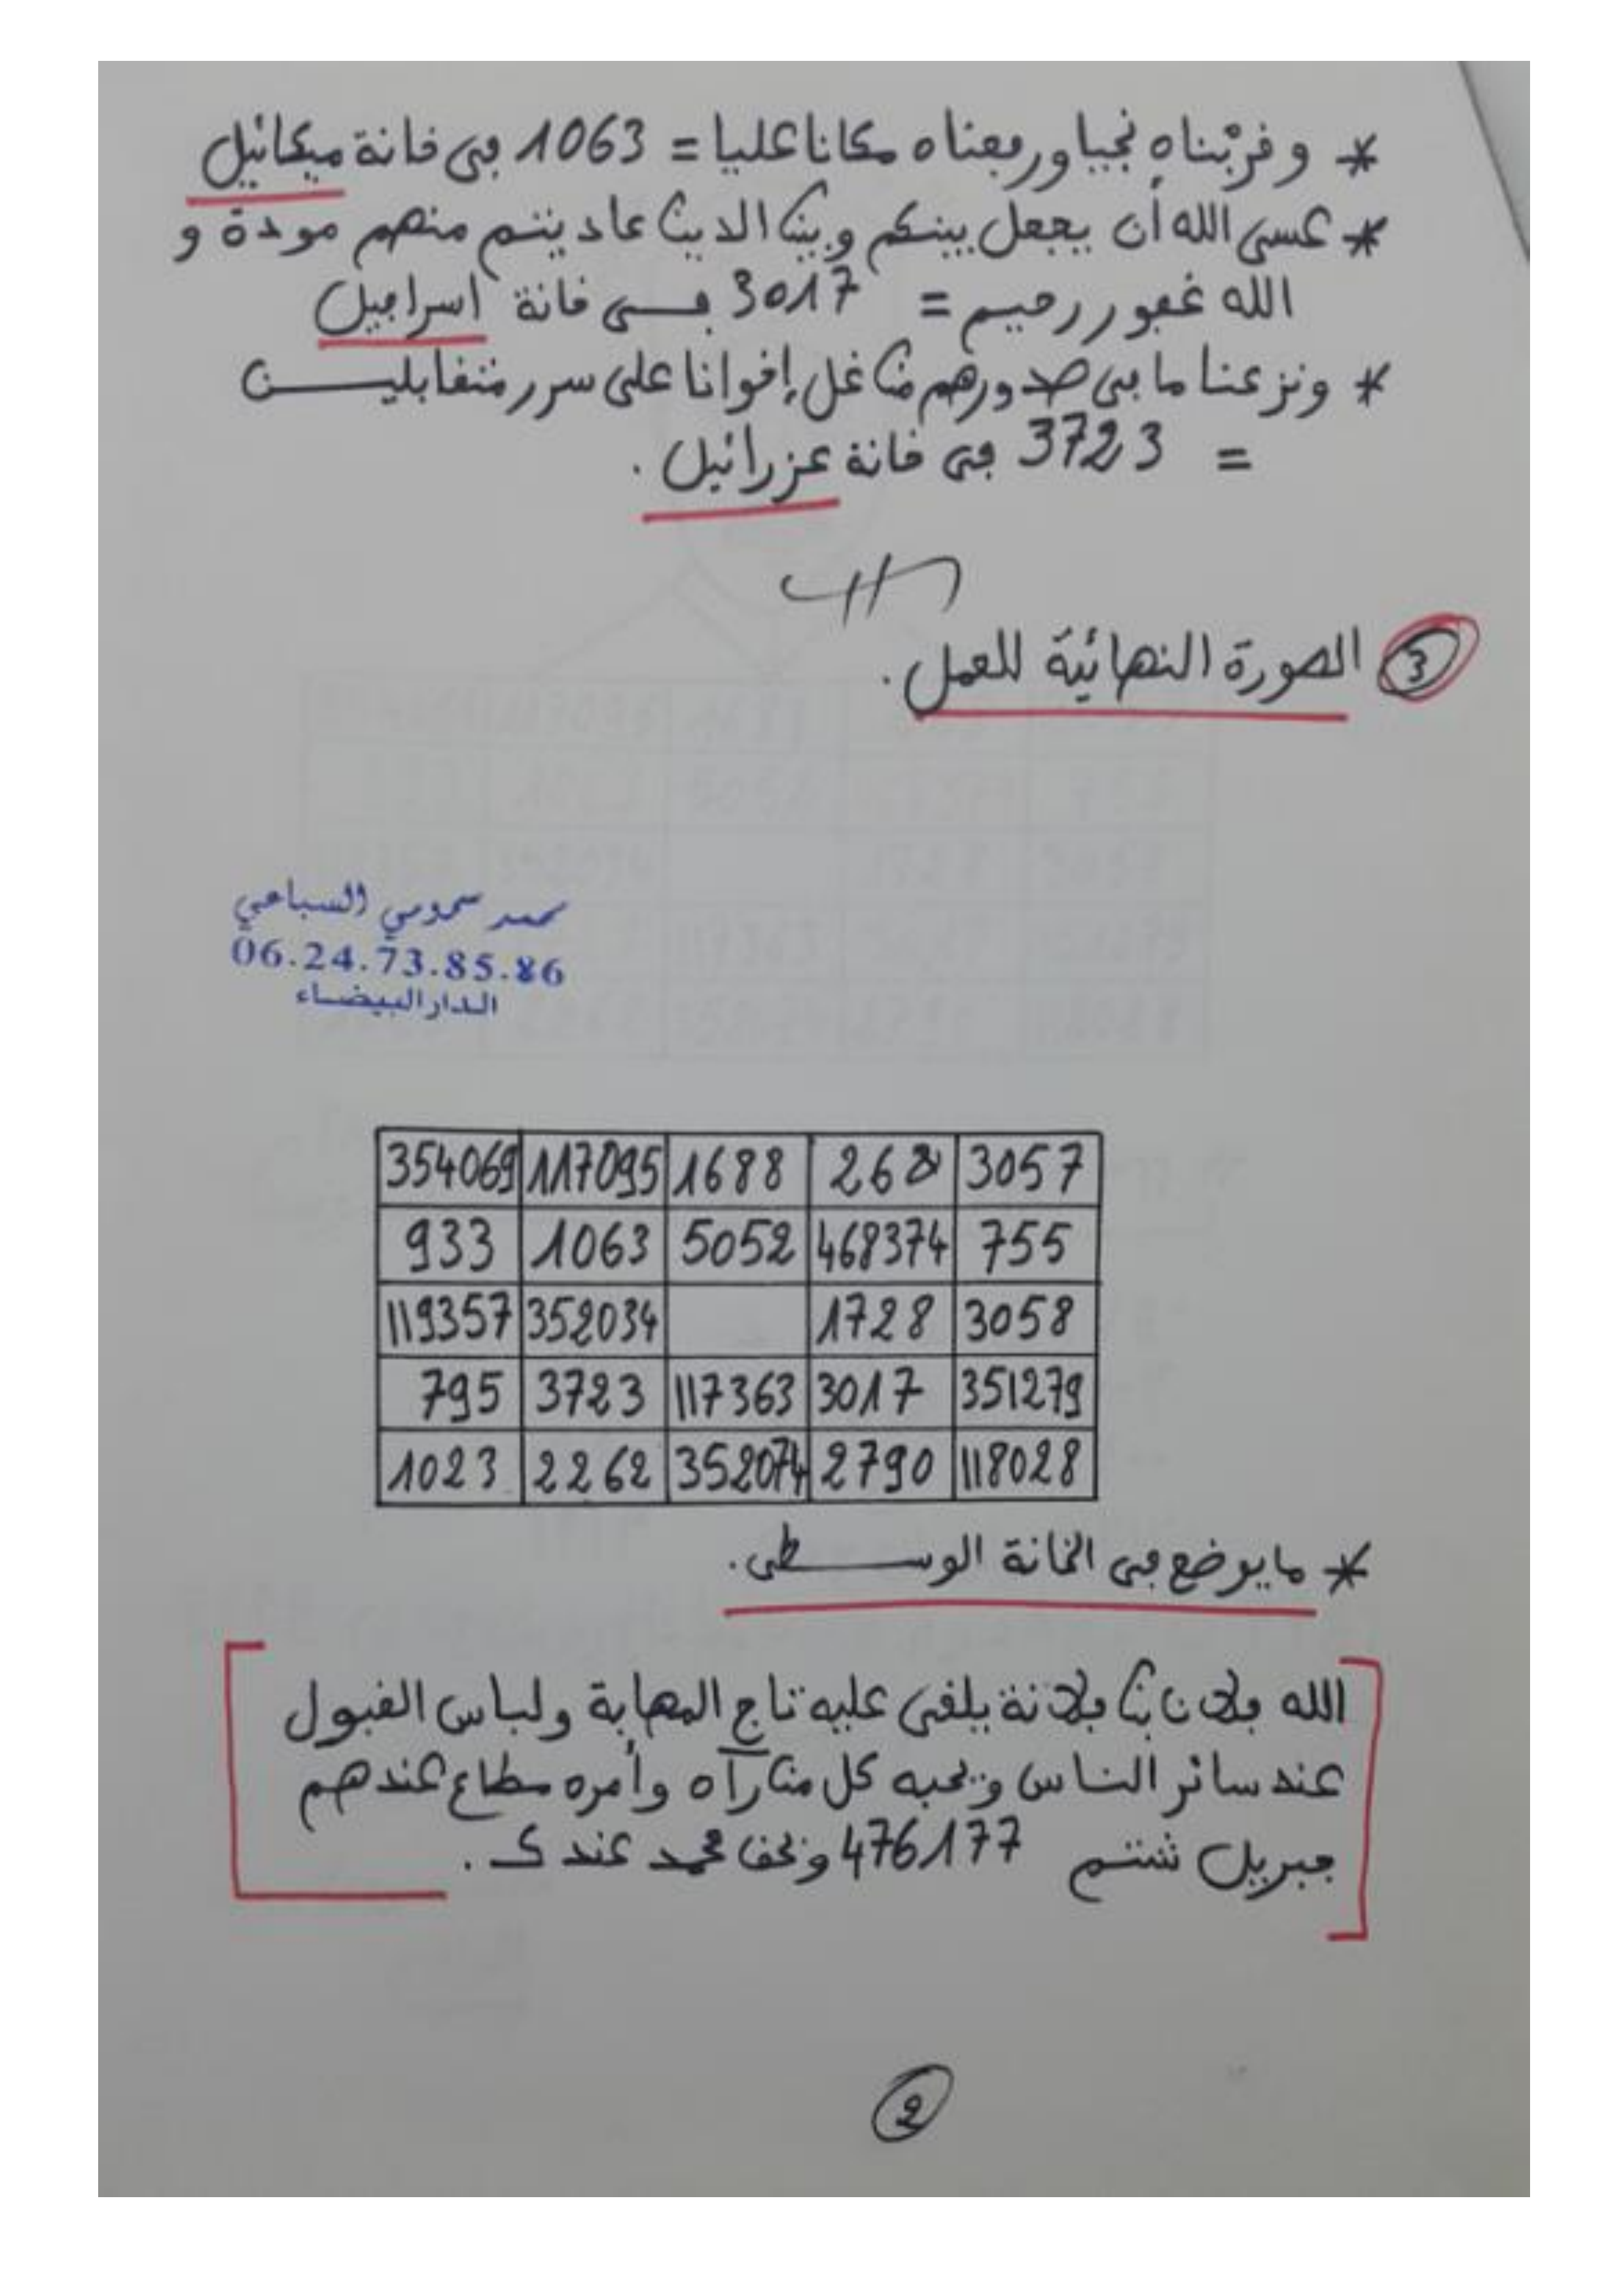 * وقربناه نجيا ورفعناه مكانا عليا = 1063 في خانة ميكائيل
* عسى الله أن يجعل بينكم وبين الدين عاديتم منهم مودة و
الله غفور رحيم = 3017 في خانة اسرافيل
* ونزعنا ما في صدورهم من غل إخوانا على سرر متقابلين
= 3723 في خانة عزرائيل .
③ الصورة النهائية للعمل .
محمد سحومي السباعي
06.24.73.85.86
الدار البيضاء
354069 117095 1688 268 3057
933 1063 5052 468374 755
119357 352034 1728 3058
795 3723 117363 3017 351279
1023 2262 352074 2790 118028
* ما يوضع في الخانة الوسطى .
الله فلان بن فلانة يلقى عليه تاج المهابة ولباس القبول
عند سائر الناس ويحبه كل من رآه وأمره مطاع عندهم
جبريل شتم 476177 وبحق محمد عندك .
②